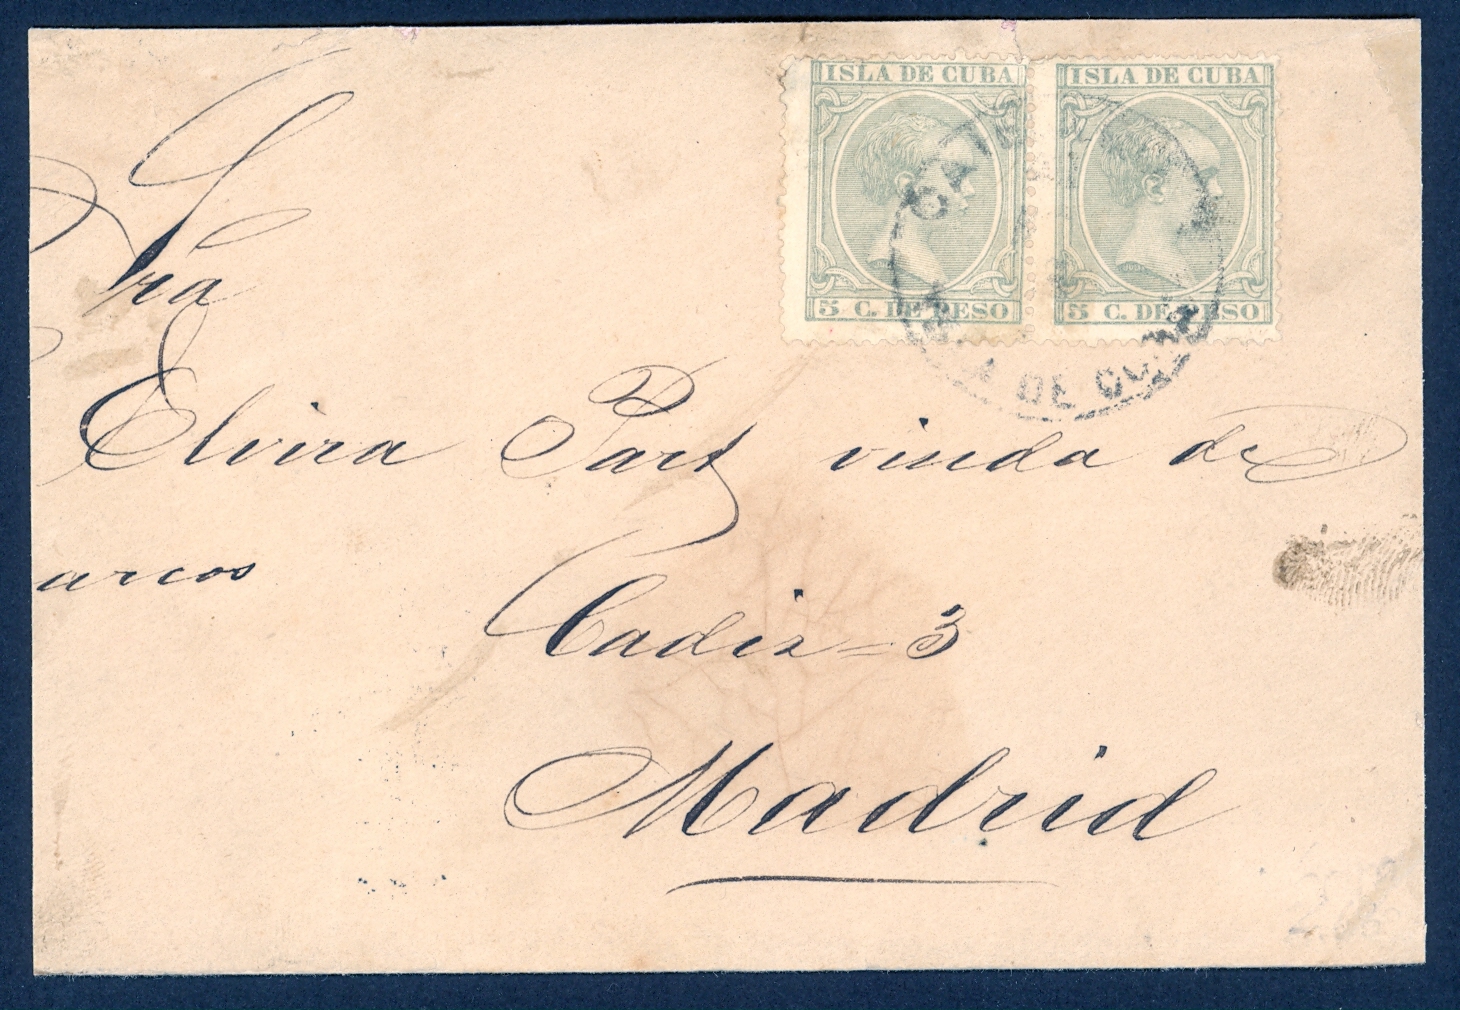 ISLA DE CUBA ISLA DE CUBA
5 C. DE PESO 5 C. DE PESO
DE CUBA
Sra
Elvira viuda de
arcos
Cadiz = 3
Madrid